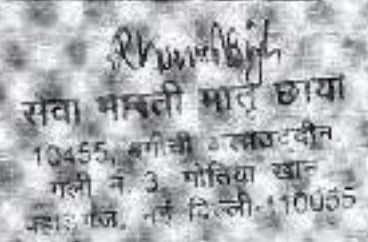 सेवा भारती मातृ छाया
10455, बगीची अलाउददीन
गली न. 3, मोतिया खान
पहाड़ गंज, नई दिल्ली-110055